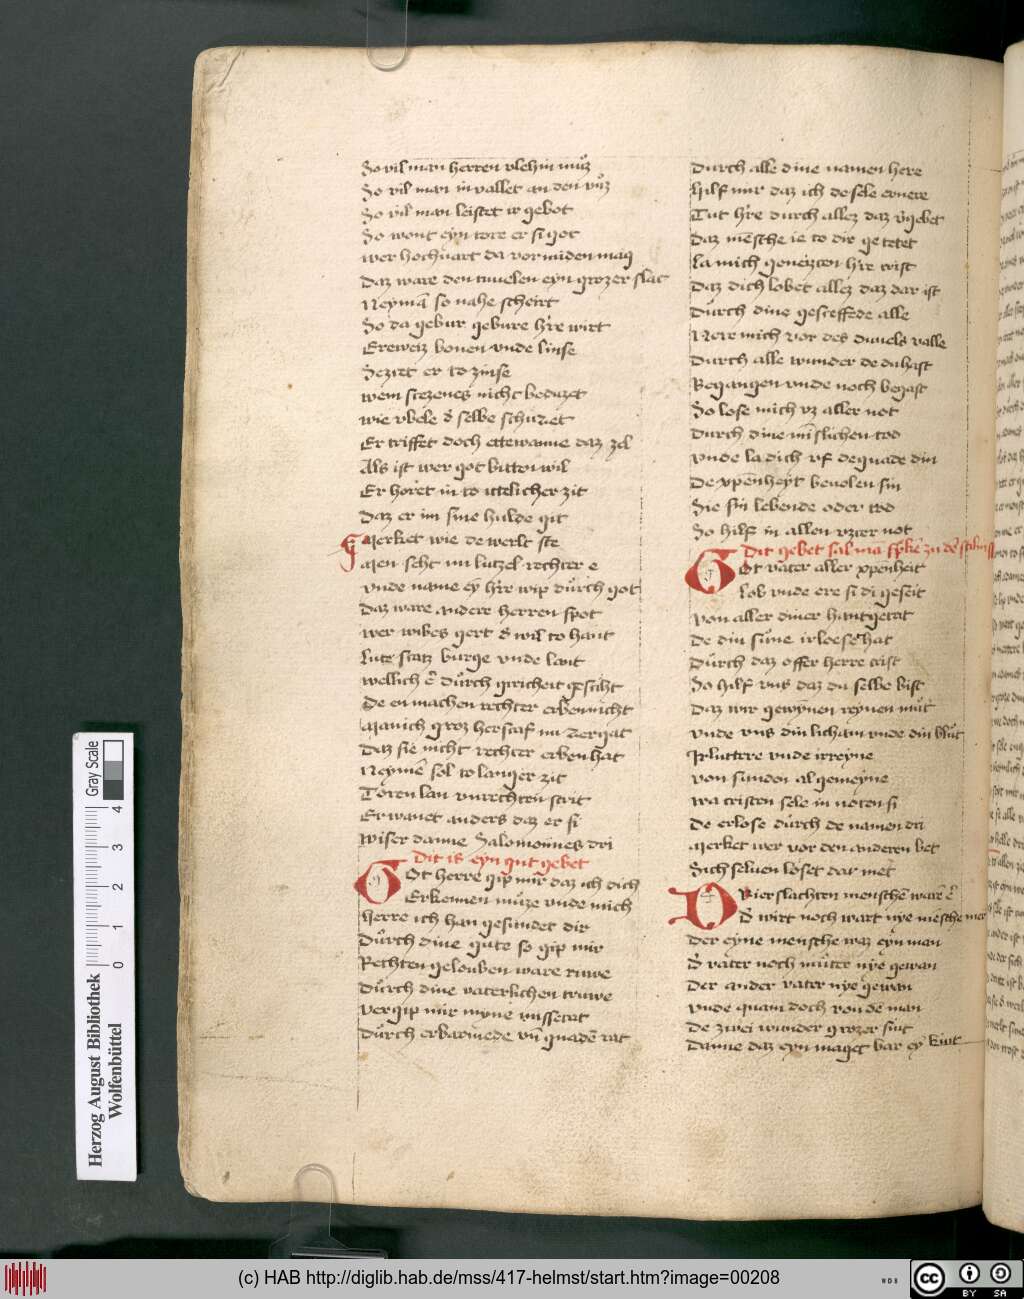 So vil man herren vlehin muͦz
So vil man in vallet an den vuͦz
So vil man leistet ir gebot
So wont eyn tore er si got
wer hochuart da vormiden mag
Daz ware den tuuelen eyn grozer slac
Neymā so nahe scheirt
So da gebur gebure h're wirt
Ereweiz bonen vnde linse
Sezzet er to zinse
wem schezenes nicht beduzet
wie vbele d' selbe schuzet
Er triffet doch ettewanne daz zel
Als ist wer got bitten wil
Er horet in to ittelicher zit
Daz er im sine hulde git
Merket wie de werlt ste
Men seht nu lutzel rechter e
vnde name eȳ h're wip durch got
Daz ware andere herren spot
wer wibes gert d' wil to hant
Lute schatz burge vnde lant
wellich ē durch giricheit geschiht
De en machen rechter erben nicht
Manich groz herscaf nu zergat
Daz sie nicht rechter erben hat
Neymē sol to langer zit
Toren lan vnrechten strit
Er wanet anders daz er si
wiser danne Salomonnes dri
Dit is eyn gut gebet
Got herre gip mir daz ich dich
Erkennen muͦze vnde mich
Herre ich han gesundet dir
Durch dine gute so gip mir
Rechten gelouben ware ruwe
Durch dine vaterlichen truwe
Vergip mir myne missetat
Durch erbarmede vn̄ genadē rat
Durch alle dine namen here
Hilf mir daz ich de sele ernere
Tut h're durch allez daz v'gebet
Daz mēsche ie to dir ge tetet
La mich geneizen h're crist
Daz dich lobet allez daz dar ist
Durch dine gesceffede alle
Nere mich vor des duuels valle
Durch alle wunder de du hast
Begangen vnde noch begast
So lose mich vz aller not
Durch dine mīslichen tod
vnde la dich vf de gnade din
De xpenheyt beuolen sin
Sie sin lebende oder tod
So hilf in allen vzer not
Dit gebet sal ma sp̄ke zu
Got vater aller xpenheit
Lob vnde ere si di geseit
von aller diner hantgetat
De din sune irloeset hat
Durch daz offer herre crist
So hilf vns daz du selbe bist
Daz wir gewynnen reynen muͦt
vnde vns din licham vnde din bluͦt
Irluttere vnde irreyne
von sunden al gemeyne
wa cristen sele in noten si
De erlose durch de namen dri
Merket wer vor den anderen bet
Sich seluen loset dar met
Drier slachten menschē warē ē
D' wirt noch wart nye mēsche mer
Der eyne mensche waz eyn man
D' vater noch muter nye gewan
Der ander vater nye gewan
vnde quam doch von dē man
De zwei wunder grozer sint
Danne daz eyn maget bar eȳ kint
Herzog August Bibliothek
Wolfenbüttel
0 1 2 3 4
Gray Scale
(c) HAB http://diglib.hab.de/mss/417-helmst/start.htm?image=00208
WDB
cc BY SA